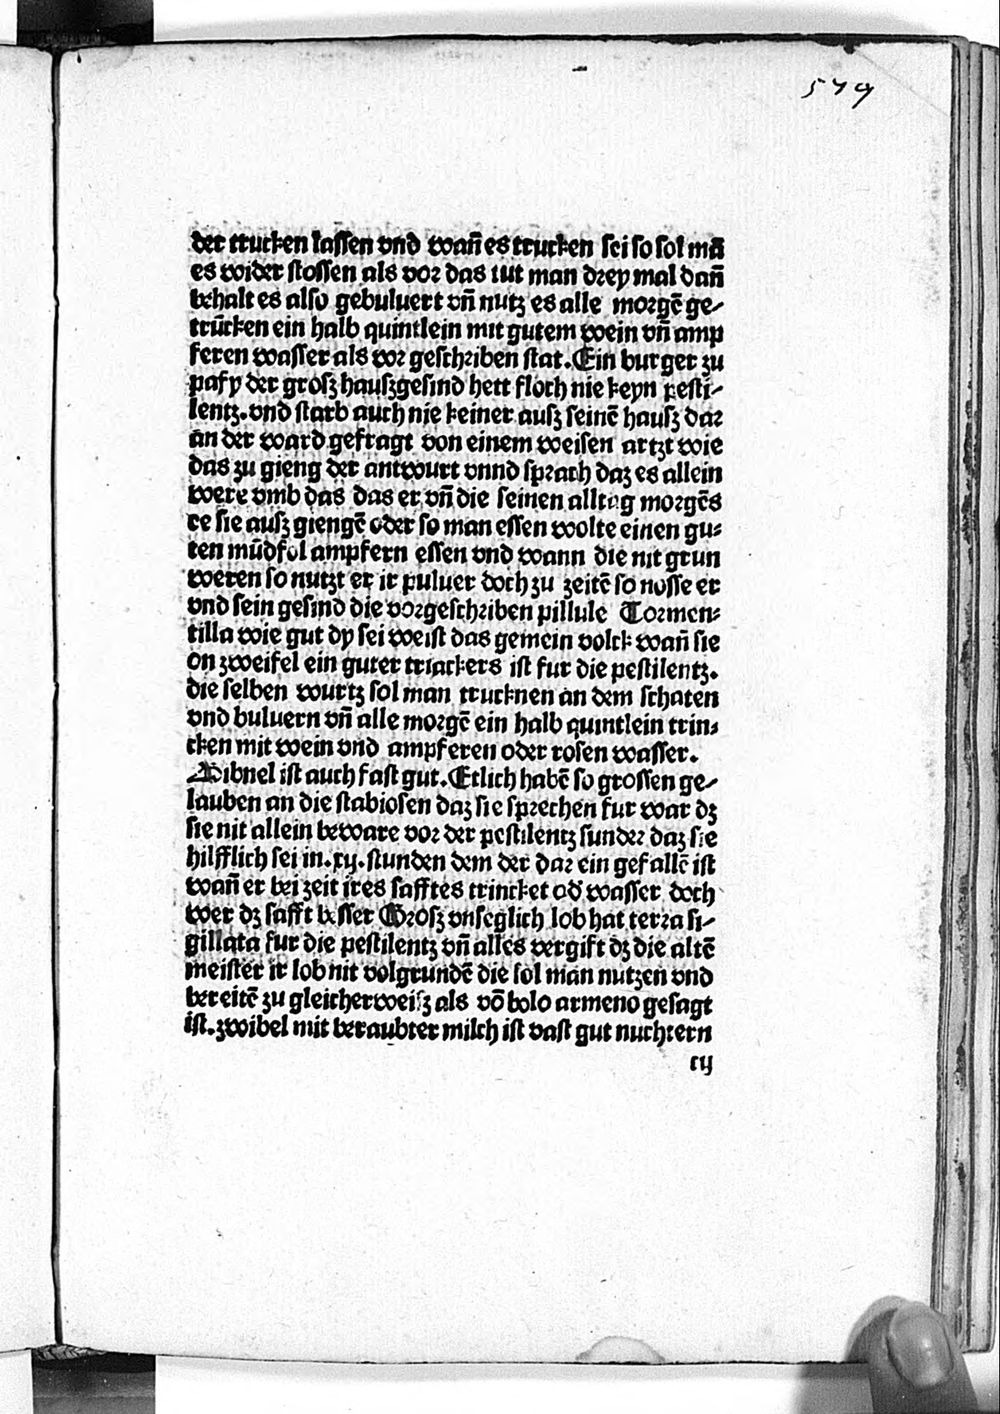 579
der trucken lassen vnd wañ es trucken sei so sol mã
es wider stossen als vor das tut man drey mal dañ
behalt es also gebuluert vñ nutz es alle morgẽ ge⸗
trũcken ein halb quintlein mit gutem wein vñ amp
feren wasser als vor geschriben stat. Ein burger zu
pafy der grosz hauszgesind hett floch nie keyn pesti⸗
lentz. vnd starb auch nie keiner ausz seinẽ hausz dar
an der ward gefragt von einem weisen artzt wie
das zu gieng der antwurt vnnd sprach daz es allein
were vmb das das er vñ die seinen alltag morgẽs
ee sie ausz giengẽ oder so man essen wolte einen gu⸗
ten mũdfol ampfern essen vnd wann die nit grun
weren so nutzt er ir puluer doch zu zeitẽ so nosse er
vnd sein gesind die vorgeschriben pillule Tormen⸗
tilla wie gut dy sei weist das gemein volck wañ sie
on zweifel ein guter triackers ist fur die pestilentz.
die selben wurtz sol man trucknen an dem schaten
vnd buluern vñ alle morgẽ ein halb quintlein trin⸗
cken mit wein vnd ampferen oder rosen wasser.
Bibnel ist auch fast gut. Etlich habẽ so grossen ge⸗
lauben an die stabiosen daz sie sprechen fur war dz
sie nit allein beware vor der pestilentz sunder daz sie
hilfflich sei in. xij. stunden dem der dar ein gefallẽ ist
wañ er bei zeit ires safftes trincket od wasser doch
wer dz safft besser Grosz vnseglich lob hat terra si⸗
gillata fur die pestilentz vñ alles vergift dz die altẽ
meister ir lob nit volgrundẽ die sol man nutzen vnd
bereitẽ zu gleicherweisz als võ bolo armeno gesagt
ist. zwibel mit beraubter milch ist vast gut nuchtern
cij